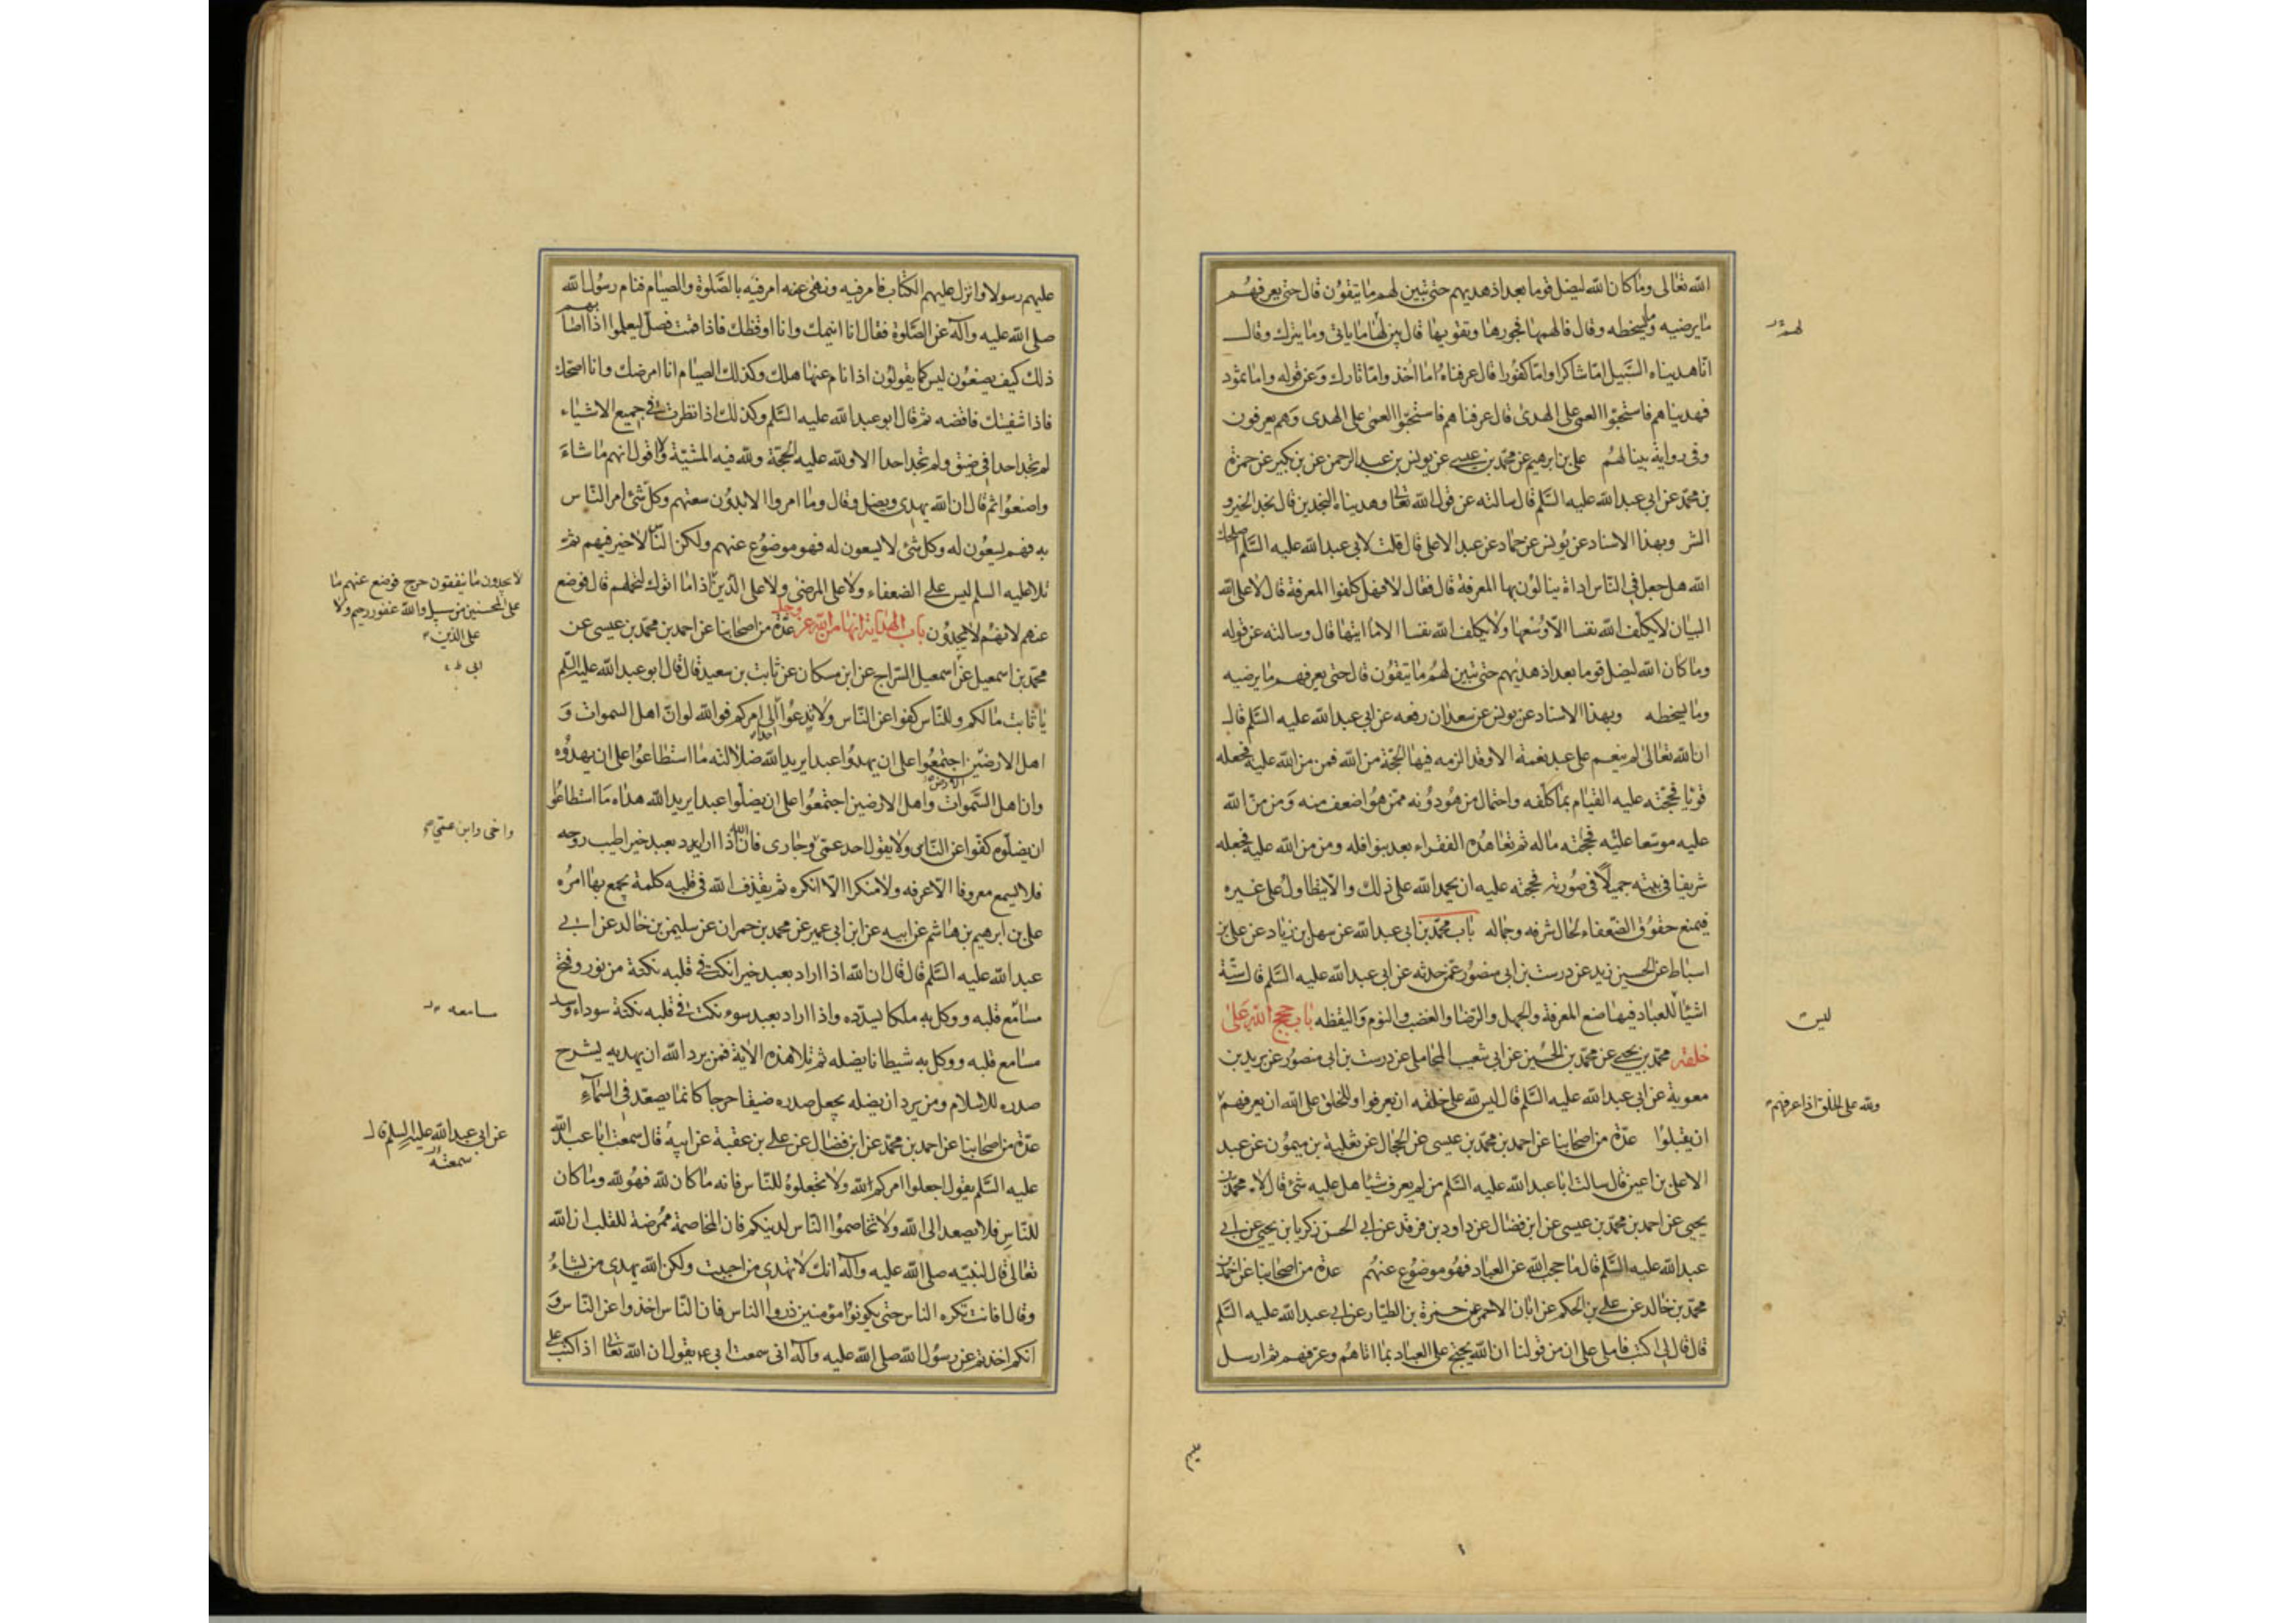 الله تعالى وما كان الله ليضل قوما بعد اذ هديهم حتى تبين لهم ما يتقون قال حتى يعرفهم
ما يرضيه وما يسخطه وقال فالهمها فجورها وتقويها قال بين لها ما ياتى وما يترك وقال
لهم
انا هديناه السبيل اما شاكرا واما كفورا قال عرفناه اما اخذ واما تارك وعن قوله واما ثمود
فهديناهم فاستحبوا العمى على الهدى قال عرفناهم فاستحبوا العمى على الهدى وهم يعرفون
وفى رواية بينا لهم على بن ابرهيم عن محمد بن عيسى عن يونس بن عبد الرحمن عن بن بكير عن حمزة
بن محمد عن ابى عبد الله عليه السلم قال سالته عن قول الله تعالى وهديناه النجدين قال نجد الخير و
الشر وبهذا الاسناد عن يونس عن حماد عن عبد الاعلى قال قلت لابى عبد الله عليه السلم اصلحك
الله هل جعل فى الناس اداة ينالون بها المعرفة قال فقال لا فهل كلفوا المعرفة قال لا على الله
البيان لا يكلف الله نفسا الا وسعها ولا يكلف الله نفسا الا ما اتيها قال وسالته عن قوله
وما كان الله ليضل قوما بعد اذ هديهم حتى تبين لهم ما يتقون قال حتى يعرفهم ما يرضيه
وما يسخطه وبهذا الاسناد عن يونس عن سعدان رفعه عن ابى عبد الله عليه السلم قال
ان الله تعالى لم ينعم على عبد نعمة الا وقد الزمه فيها الحجة من الله فمن من الله عليه فجعله
قويا فحجته عليه القيام بما كلفه واحتمال من هو دونه ممن هو اضعف منه ومن من الله
عليه موسعا عليه فحجته ماله ثم تعاهده الفقراء بعد بنوافله ومن من الله عليه فجعله
شريفا فى بيته جميلا فى صورته فحجته عليه ان يحمد الله على ذلك والا يتطاول على غيره
فيمنع حقوق الضعفاء لحال شرفه وجماله باب محمد بن ابى عبد الله عن سهل بن زياد عن على بن
اسباط عن الحسين زيد عن درست بن ابى منصور عمن حدثه عن ابى عبد الله عليه السلم قال ستة
اشيا للعباد فيها صنع المعرفة والجهل والرضا والغضب والنوم واليقظه باب حجج الله على
ليس
خلقه محمد بن يحيى عن محمد بن الحسين عن ابى شعيب المحاملى عن درست بن ابى منصور عن بريد بن
معوية عن ابى عبد الله عليه السلم قال ليس لله على خلقه ان يعرفوا وللخلق على الله ان يعرفهم
ولله على الخلق اذا عرفهم
ان يقبلوا عدة من اصحابنا عن احمد بن محمد بن عيسى عن الحجال عن ثعلبة بن ميمون عن عبد
الاعلى بن اعين قال سالت ابا عبد الله عليه السلم من لم يعرف شيا هل عليه شئ قال لا محمد بن
يحيى عن احمد بن محمد بن عيسى عن ابن فضال عن داود بن فرقد عن ابى الحسن زكريا بن يحيى عن ابى
عبد الله عليه السلم قال ما حجب الله عن العباد فهو موضوع عنهم عدة من اصحابنا عن احمد بن
محمد بن خالد عن على بن الحكم عن ابان الاحمر عن حمزة بن الطيار عن ابى عبد الله عليه السلم
قال قال لى اكتب فاملى على ان من قولنا ان الله يحتج على العباد بما اتاهم وعرفهم ثم ارسل
عليهم رسولا وانزل عليهم الكتاب فامر فيه ونهى عنه امر فيه بالصلوة والصيام فنام رسول الله
صلى الله عليه وآله عن الصلوة فقال انا انيمك وانا اوقظك فاذا قمت فصل ليعلموا اذا اصابهم
ذلك كيف يصنعون ليس كما يقولون اذا نام عنها هلك وكذلك الصيام انا امرضك وانا اصحك
فاذا شفيتك فاقضه ثم قال ابو عبد الله عليه السلم وكذلك اذا نظرت فى جميع الاشياء
لم تجد احدا فى ضيق ولم تجد احدا الا ولله عليه الحجة ولله فيه المشية ولا اقول انهم ما شاء
واصنعوا ثم قال ان الله يهدى ويضل وقال وما امروا الا بدون سعتهم وكل شئ امر الناس
به فهم يسعون له وكل شئ لا يسعون له فهو موضوع عنهم ولكن الناس لا خير فيهم ثم
تلا عليه السلم ليس على الضعفاء ولا على المرضى ولا على الذين اذا ما اتوك لتحملهم قال فوضع
لا يجدون ما ينفقون حرج فوضع عنهم ما
على المحسنين من سبيل والله غفور رحيم ولا
على الذين
عنهم لانهم لا يجدون باب الهداية انها من الله عز وجل عدة من اصحابنا عن احمد بن محمد بن عيسى عن
محمد بن اسمعيل عن اسمعيل السراج عن ابن مسكان عن ثابت بن سعيد قال قال ابو عبد الله عليه السلم
يا ثابت ما لكم وللناس كفوا عن الناس ولا تدعوا احدا الى امركم فوالله لو ان اهل السموات و
اهل الارضين اجتمعوا على ان يهدوا عبدا يريد الله ضلالته ما استطاعوا على ان يهدوه
وان اهل السموات واهل الارضين اجتمعوا على ان يضلوا عبدا يريد الله هداه ما استطاعوا
ان يضلوه كفوا عن الناس ولا يقول احد عمى وجارى فان الله اذا اراد بعبد خيرا طيب روحه
واخى وابن عمى
فلا يسمع معروفا الا عرفه ولا منكرا الا انكره ثم يقذف الله فى قلبه كلمة يجمع بها امره
على بن ابرهيم بن هاشم عن ابيه عن ابن ابى عمير عن محمد بن حمران عن سليمن بن خالد عن ابى
عبد الله عليه السلم قال قال ان الله اذا اراد بعبد خيرا نكت فى قلبه نكتة من نور وفتح
مسامع قلبه ووكل به ملكا يسدده واذا اراد بعبد سوء نكت فى قلبه نكتة سوداء وسد
سامعه
مسامع قلبه ووكل به شيطانا يضله ثم تلا هذه الاية فمن يرد الله ان يهديه يشرح
صدره للاسلام ومن يرد ان يضله يجعل صدره ضيقا حرجا كانما يصعد فى السماء
عدة من اصحابنا عن احمد بن محمد عن ابن فضال عن على بن عقبة عن ابيه قال سمعت ابا عبد الله
عن ابى عبد الله عليه السلم قال
سمعته
عليه السلم يقول اجعلوا امركم لله ولا تجعلوه للناس فانه ما كان لله فهو لله وما كان
للناس فلا يصعد الى الله ولا تخاصموا الناس لدينكم فان المخاصمة ممرضة للقلب ان الله
تعالى قال لنبيه صلى الله عليه وآله انك لا تهدى من احببت ولكن الله يهدى من يشاء
وقال افانت تكره الناس حتى يكونوا مؤمنين ذروا الناس فان الناس اخذوا عن الناس و
انكم اخذتم عن رسول الله صلى الله عليه وآله انى سمعت ابى ع يقول ان الله تعالى اذا كتب على